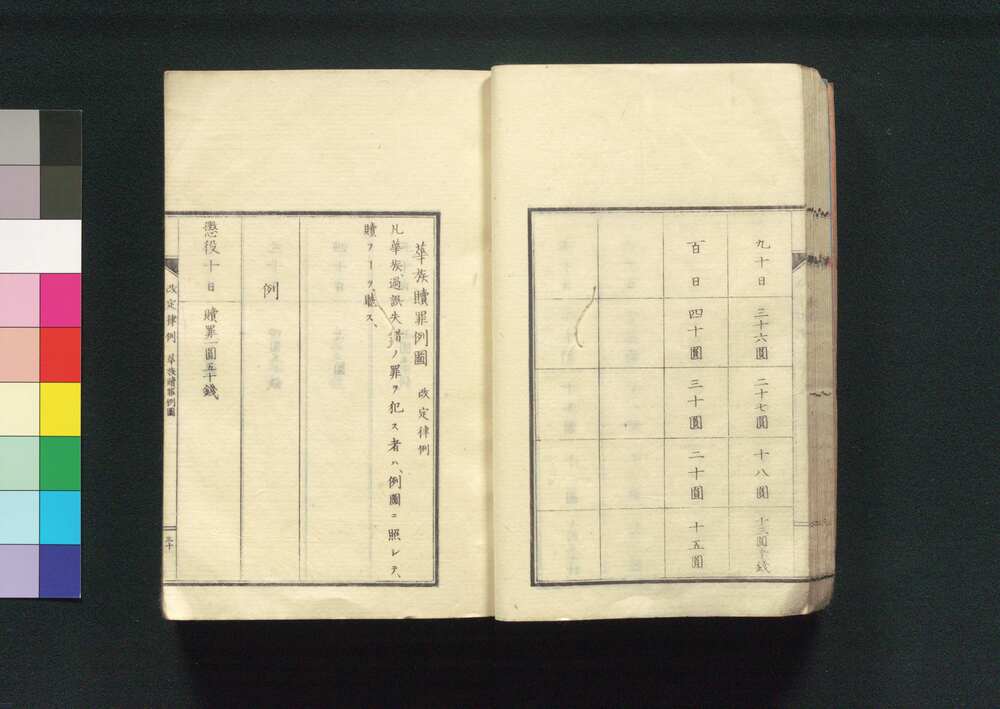 九十日 三十六圓 二十七圓 十八圓 十三圓五十錢
百日 四十圓 三十圓 二十圓 十五圓
華族贖罪例圖 改定律例
凡華族、過誤失錯ノ罪ヲ犯ス者ハ、例圖ニ照シテ、
贖フーヲ聽ス、
例
懲役十日 贖罪一圓五十錢
改定律例 華族贖罪例圖
三十